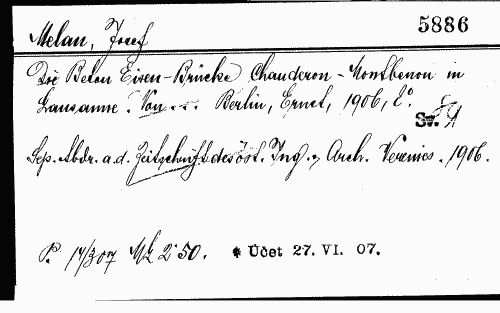 5886
Melan, Josef
Die Beton Eisen-Brücke Chauderon-Montbenon in
Lausanne. Von .... Berlin, Ernst, 1906, 2°.
Sv.
Sep. Abdr. a. d. Zeitschrift des öst. Ing. u. Arch. Vereines. 1906.
P. 14/3 07 Mk 2·50. * Účet 27. VI. 07.